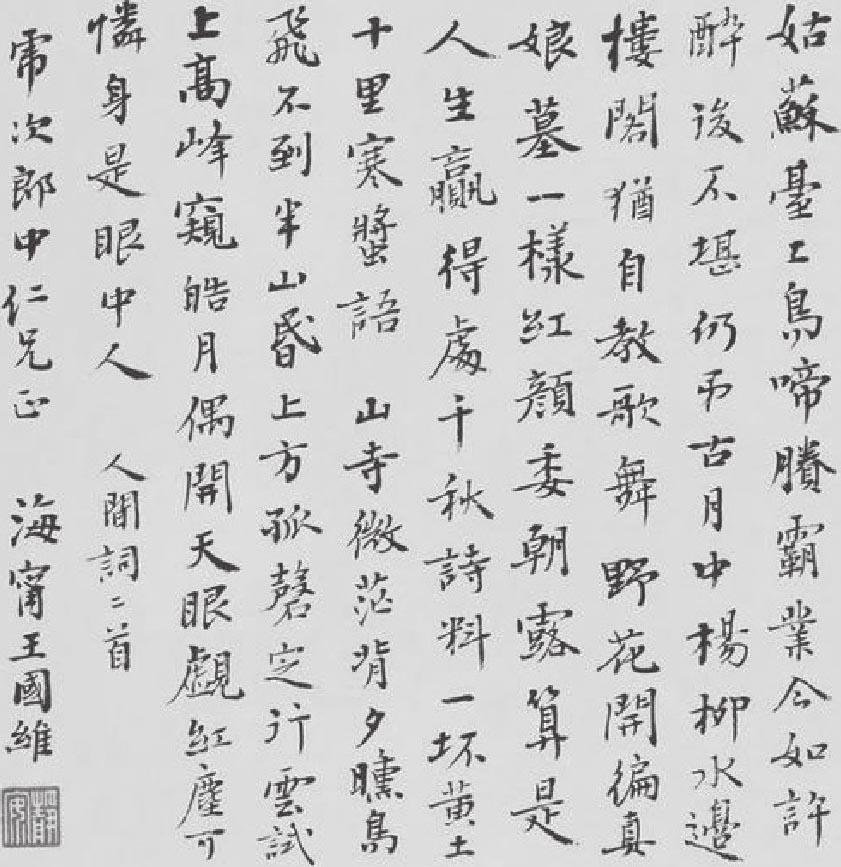 姑蘇臺上烏啼賸霸業今如許
醉後不堪仍弔古月中楊柳水邊
樓閣猶自教歌舞野花開徧真
娘墓一樣紅顏委朝露算是
人生贏得處千秋詩料一坏黃土
十里寒螿語 山寺微茫背夕曛鳥
飛不到半山昏上方孤磬定行雲試
上高峰窺皓月偶開天眼覷紅塵可
憐身是眼中人 人間詞二首
次郎中仁兄正 海甯王國維